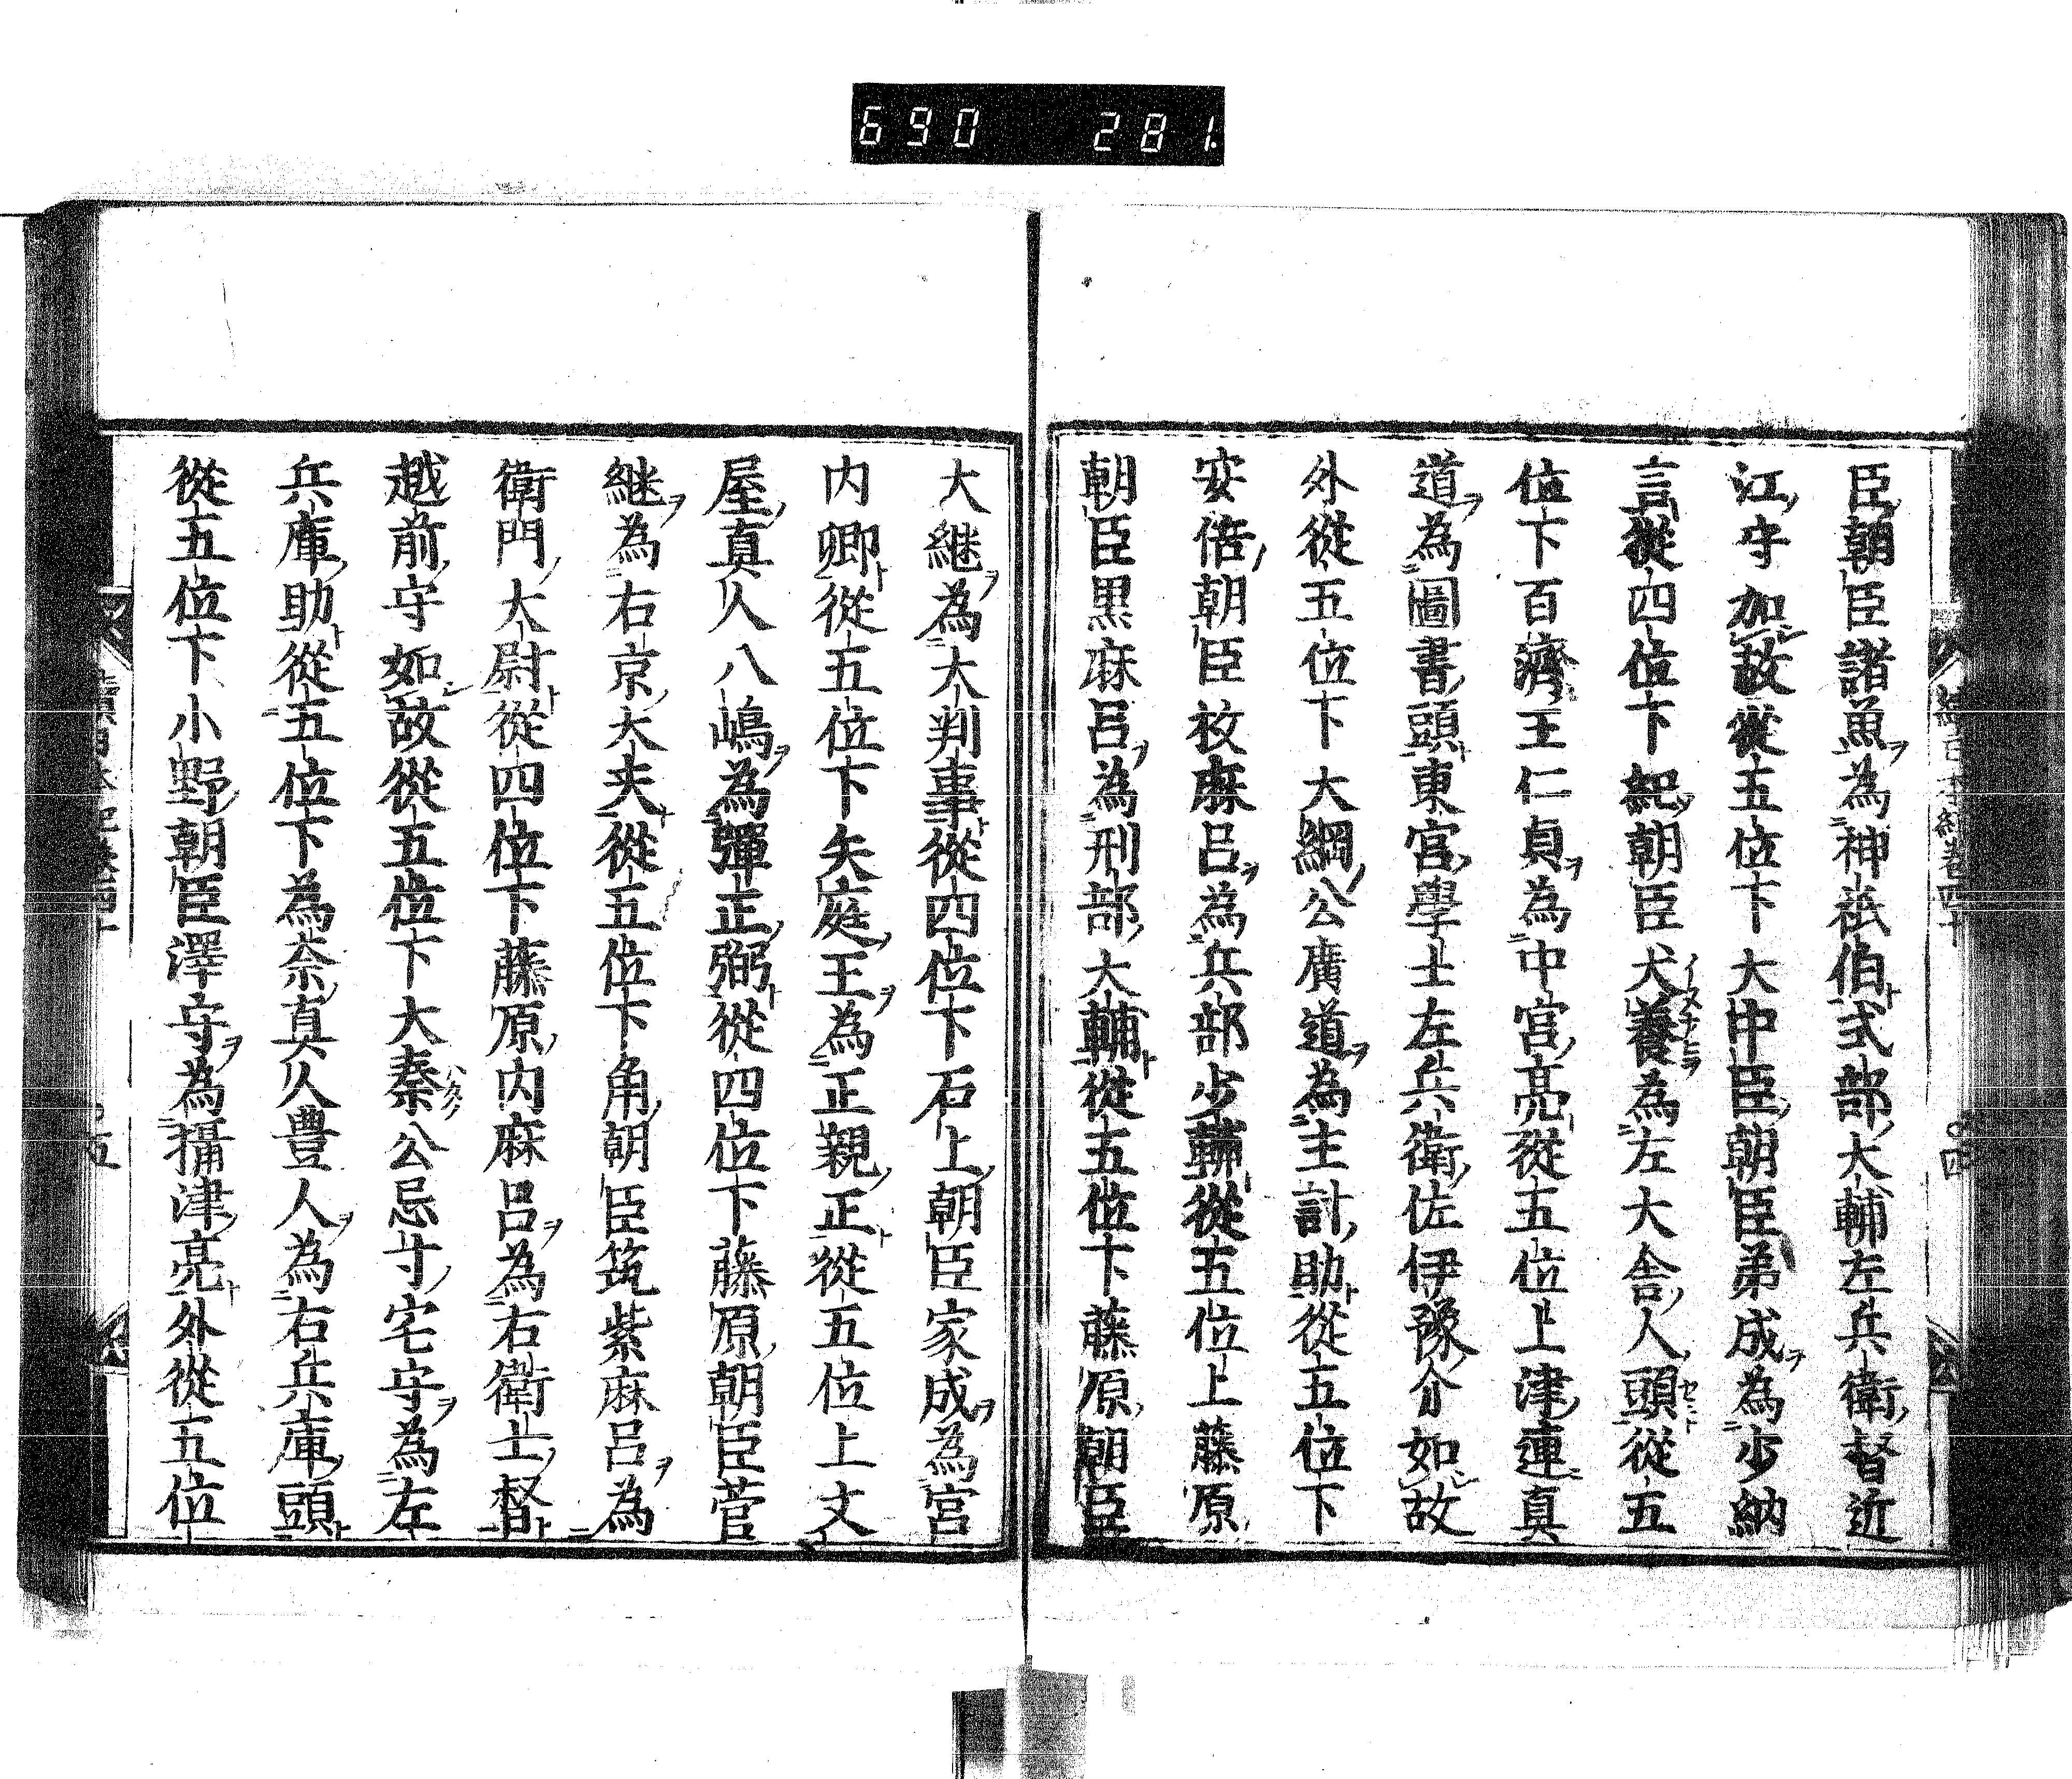 690 281.
臣朝臣諸魚ヲ為神祇伯ト式部大輔左兵衛督近
江守加故從五位下大中臣朝臣弟成ヲ為少納
言從四位下紀朝臣犬養為左大舎人頭從五
位下百濟王仁貞ヲ為中宮亮從五位上津連真
道ヲ為圖書頭東宮學士左兵衛佐伊豫介如故
外從五位下大網公廣道ヲ為主計助ト從五位下
安倍朝臣枚麻呂ヲ為兵部少輔從五位上藤原
朝臣黒麻呂ヲ為刑部大輔ト從五位下藤原朝臣
大継ヲ為大判事ト從四位下石上朝臣家成ヲ為宮
内卿ト從五位下矢庭王ヲ為正親正ト從五位上文
屋真人八嶋ヲ為彈正弼ト從四位下藤原朝臣菅
継ヲ為右京大夫ト從五位下角朝臣筑紫麻呂ヲ為
衛門大尉ト從四位下藤原内麻呂ヲ為右衛士督ト
越前守如故從五位下大秦公忌寸宅守ヲ為左
兵庫助ト從五位下為奈真人豊人ヲ為右兵庫頭ト
從五位下小野朝臣澤守ヲ為攝津亮ト外從五位